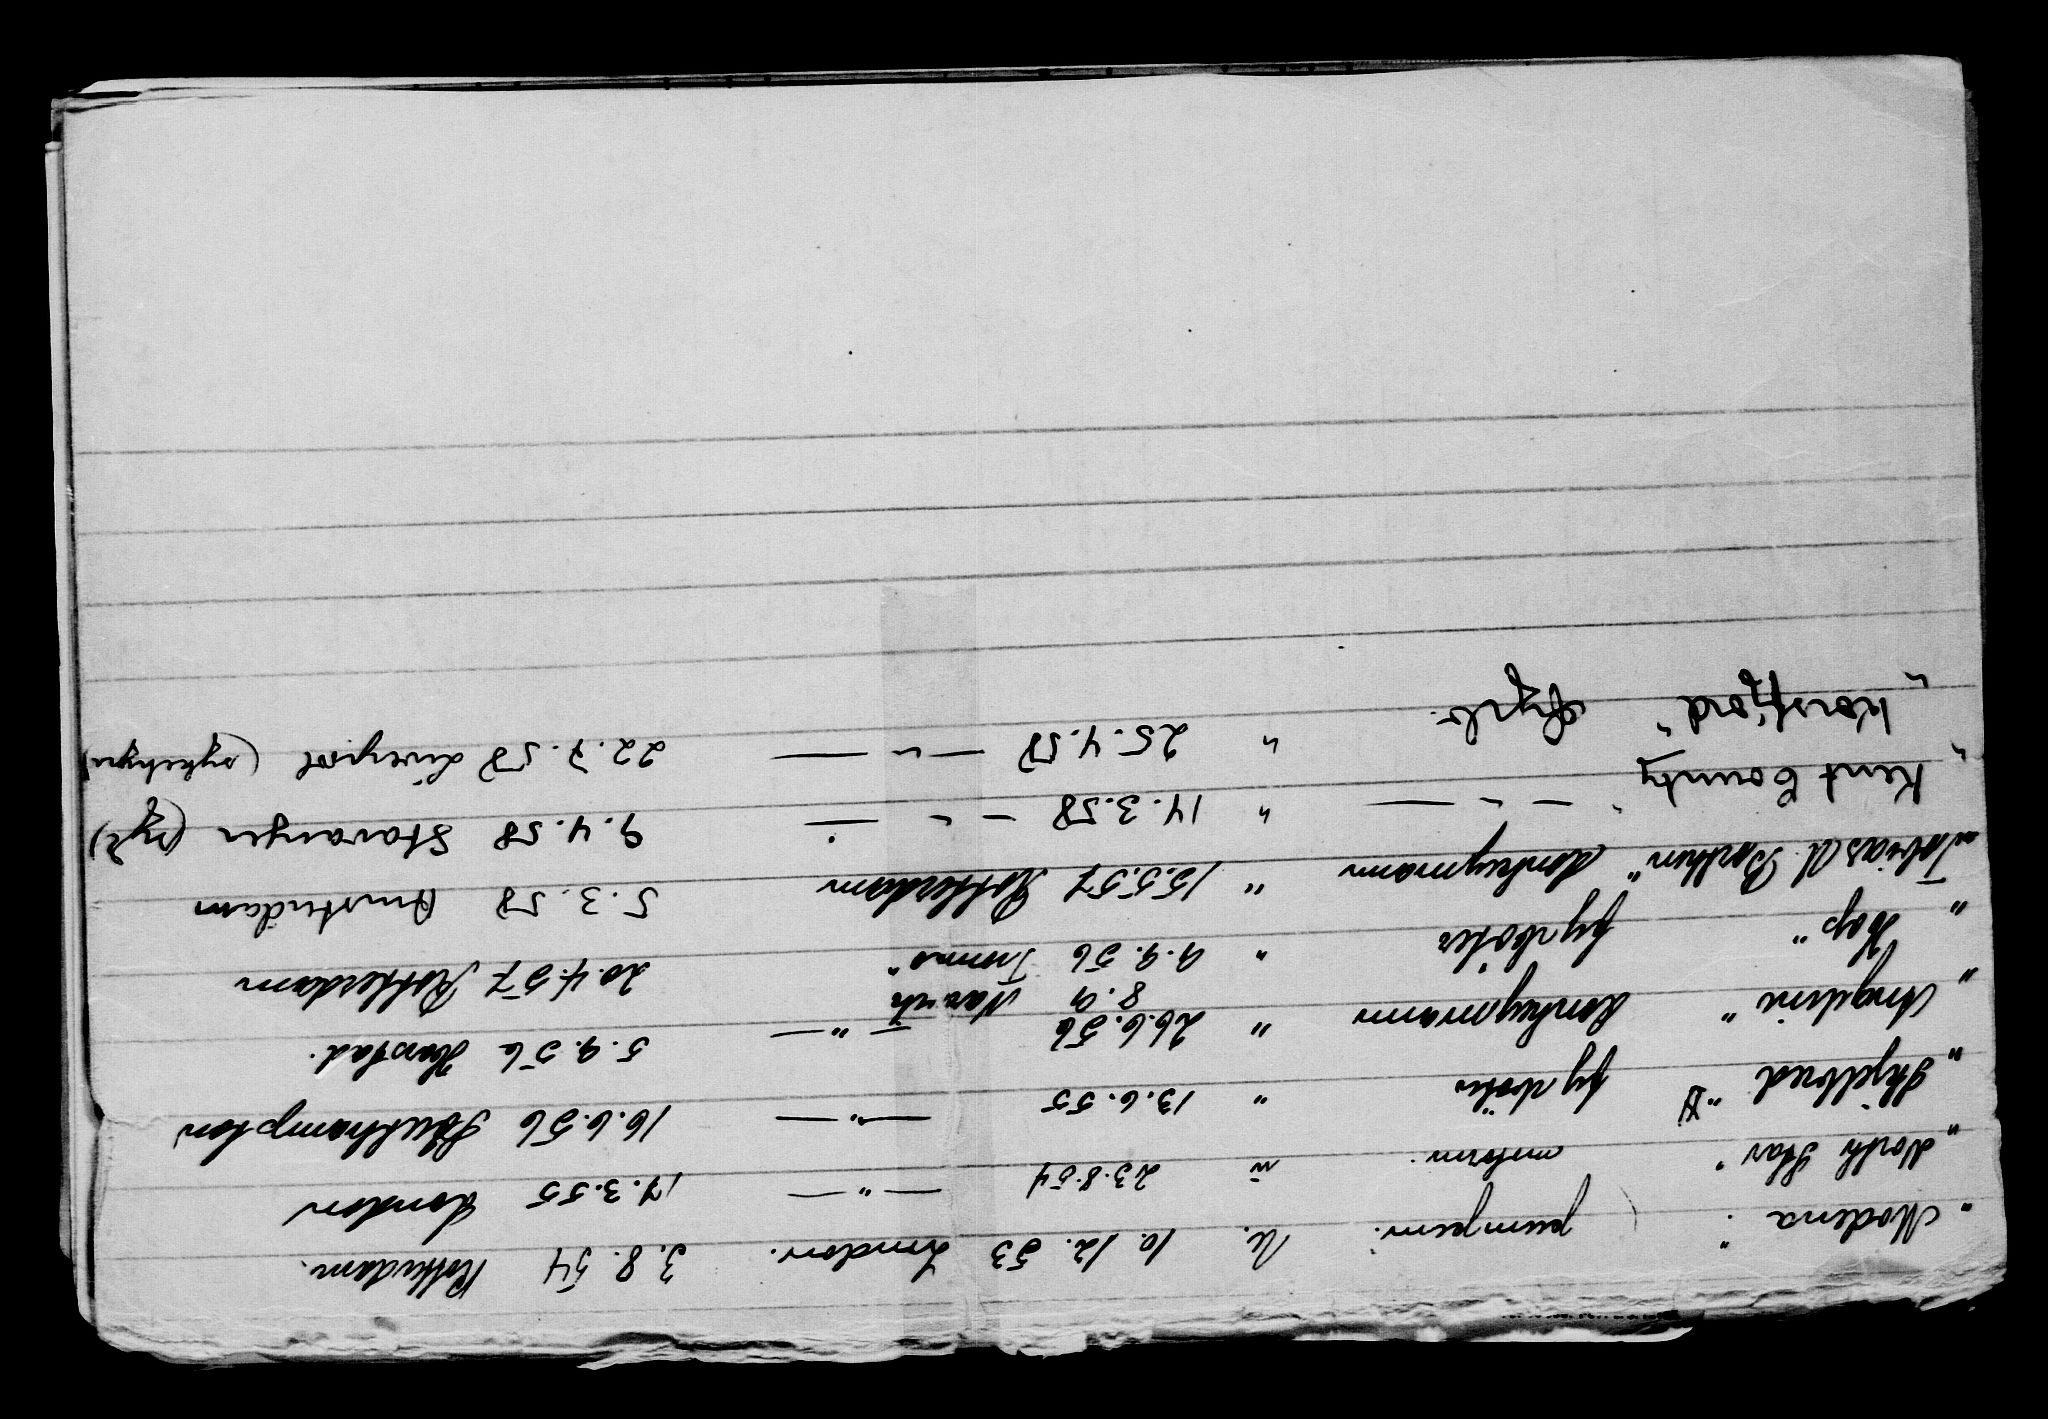 "Modena" pumpem. u. 10.12.53 London. 3.8.54 Rotterdam.
"North Star" motorm. " 23.8.54 — " — 17.3.55 London
"Skjelbred" fyrbøter " 13.6.55 — " — 16.6.56 Southampton
"Angelina" donkeymann " 26.6.56 — " — 5.9.56 Harstad.
8.9 Narvik
"Hop" fyrbøter " 9.9.56 Tromsø 20.4.57 Rotterdam
"Tobias U. Borthen" donkeymann " 15.5.57 Rotterdam 5.3.58 Amsterdam
"Kent County" — " — " 14.3.58 — " — 9.4.58 Stavanger (syk)
"Korsfjord" Fyrb. " 25.4.58 — " — 22.7.58 Liverpool